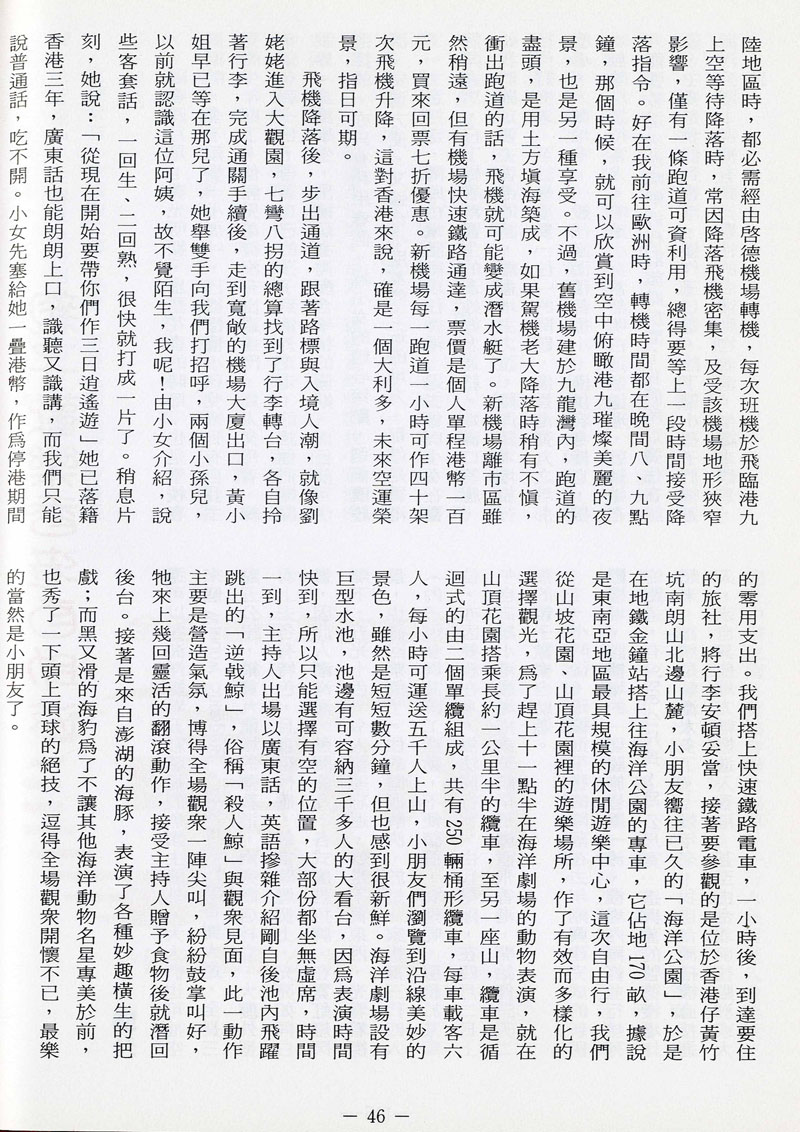 陸地區時，都必需經由啓德機場轉機，每次班機於飛臨港九
上空等待降落時，常因降落飛機密集，及受該機場地形狹窄
影響，僅有一條跑道可資利用，總得要等上一段時間接受降
落指令。好在我前往歐洲時，轉機時間都在晚間八、九點
鐘，那個時候，就可以欣賞到空中俯瞰港九璀燦美麗的夜
景，也是另一種享受。不過，舊機場建於九龍灣內，跑道的
盡頭，是用土方塡海築成，如果駕機老大降落時稍有不愼，
衝出跑道的話，飛機就可能變成潛水艇了。新機場離市區雖
然稍遠，但有機場快速鐵路通達，票價是個人單程港幣一百
元，買來回票七折優惠。新機場每一跑道一小時可作四十架
次飛機升降，這對香港來說，確是一個大利多，未來空運榮
景，指日可期。
飛機降落後，步出通道，跟著路標與入境人潮，就像劉
姥姥進入大觀園，七彎八拐的總算找到了行李轉台，各自拎
著行李，完成通關手續後，走到寬敞的機場大廈出口，黃小
姐早已等在那兒了，她舉雙手向我們打招呼，兩個小孫兒，
以前就認識這位阿姨，故不覺陌生，我呢！由小女介紹，說
些客套話，一回生、二回熟，很快就打成一片了。稍息片
刻，她說：「從現在開始要帶你們作三日逍遙遊」她已落籍
香港三年，廣東話也能朗朗上口，識聽又識講，而我們只能
說普通話，吃不開。小女先塞給她一疊港幣，作爲停港期間
的零用支出。我們搭上快速鐵路電車，一小時後，到達要住
的旅社，將行李安頓妥當，接著要參觀的是位於香港仔黃竹
坑南朗山北邊山麓，小朋友嚮往已久的「海洋公園」，於是
在地鐵金鐘站搭上往海洋公園的專車，它佔地170畝，據說
是東南亞地區最具規模的休閒遊樂中心，這次自由行，我們
從山坡花園、山頂花園裡的遊樂場所，作了有效而多樣化的
選擇觀光，爲了趕上十一點半在海洋劇場的動物表演，就在
山頂花園搭乘長約一公里半的纜車，至另一座山，纜車是循
迴式的由二個單纜組成，共有250輛桶形纜車，每車載客六
人，每小時可運送五千人上山，小朋友們瀏覽到沿線美妙的
景色，雖然是短短數分鐘，但也感到很新鮮。海洋劇場設有
巨型水池，池邊有可容納三千多人的大看台，因爲表演時間
快到，所以只能選擇有空的位置，大部份都坐無虛席，時間
一到，主持人出場以廣東話，英語摻雜介紹剛自後池內飛躍
跳出的「逆戟鯨」，俗稱「殺人鯨」與觀衆見面，此一動作
主要是營造氣氛，博得全場觀衆一陣尖叫，紛紛鼓掌叫好，
牠來上幾回靈活的翻滾動作，接受主持人贈予食物後就潛回
後台。接著是來自澎湖的海豚，表演了各種妙趣橫生的把
戲；而黑又滑的海豹爲了不讓其他海洋動物名星專美於前，
也秀了一下頭上頂球的絕技，逗得全場觀衆開懷不已，最樂
的當然是小朋友了。
— 46 —